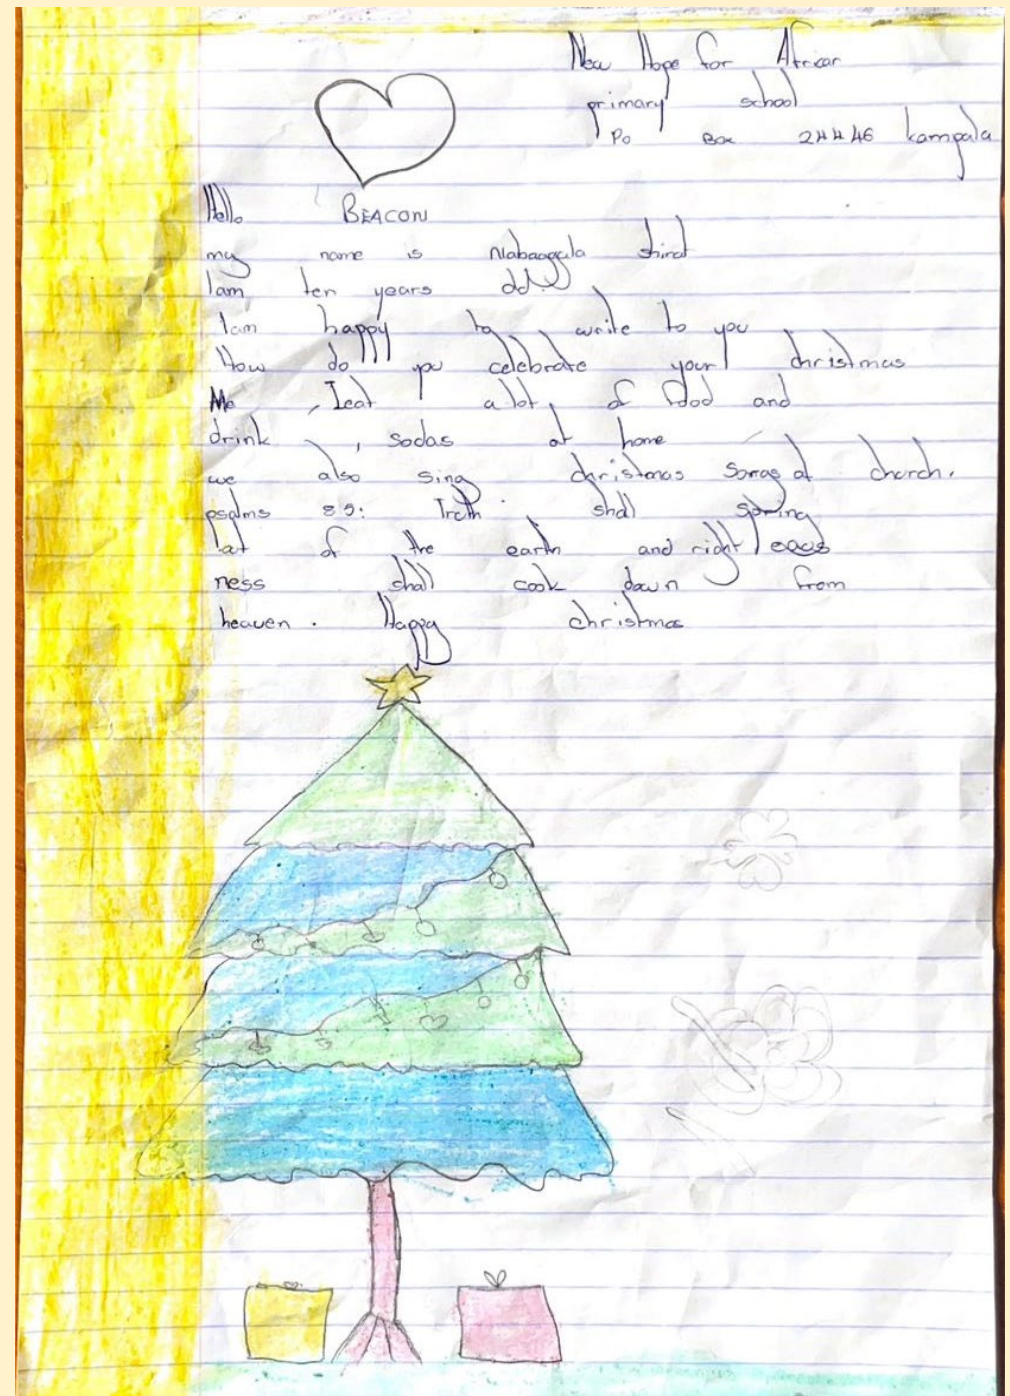 New Hope for African
primary school
Po Box 24446 kampala
Hello BEACON
my name is
Iam ten years old
Iam happy to write to you
How do you celebrate your christmas
Me , Ieat a lot of food and
drink , sodas at home
we also sing christmas songs at church.
psalms 85: Truth shall spring
out of the earth and right eous
ness shall look down from
heaven . Happy christmas